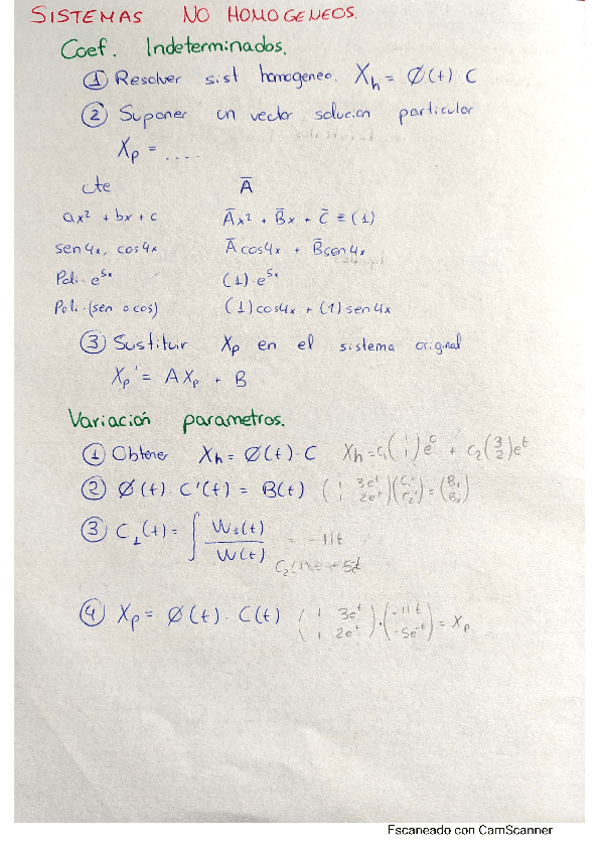 SISTEMAS NO HOMOGENEOS.
Coef. Indeterminados.
① Resolver sist homogeneo. Xh = Ø(t) · C
② Suponer un vector solucion particular
Xp = ....
cte Ā
ax² + bx + c Āx² + B̄x + C̄ ≡ (1)
sen4x, cos4x Ācos4x + B̄sen4x
Poli · e⁵ˣ (1) · e⁵ˣ
Poli · (sen o cos) (1)cos4x + (1)sen4x
③ Sustituir Xp en el sistema original
Xp' = AXp + B
Variación parametros.
① Obtener Xh = Ø(t) · C Xh = C₁(1 1)e⁰ + C₂(3 2)eᵗ
② Ø(t) · C'(t) = B(t) (1 3eᵗ 1 2eᵗ)(C₁' C₂') = (B₁ B₂)
③ C₁(t) = ∫ W₁(t) / W(t) = -11t
④ Xp = Ø(t) · C(t) (1 3eᵗ 1 2eᵗ) · (-11t -5e⁻ᵗ) = Xp
Escaneado con CamScanner